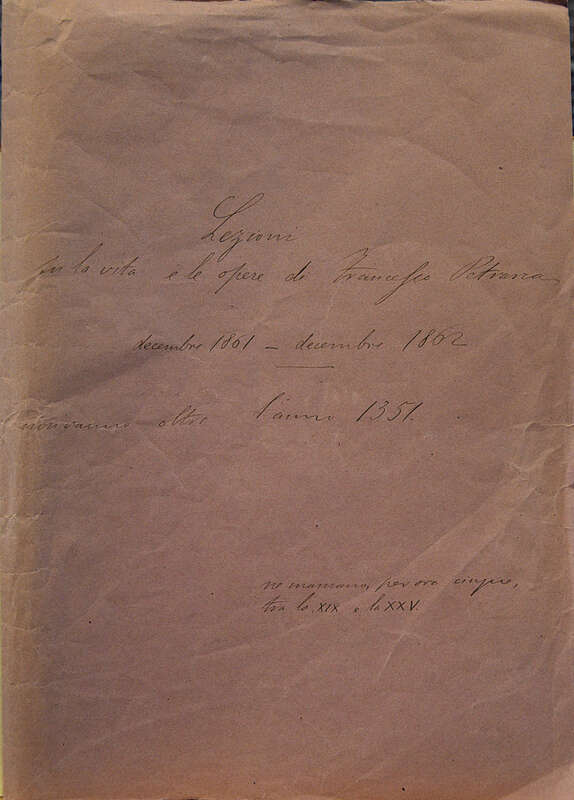 Lezioni
su la vita e le opere di Francesco Petrarca
decembre 1861 – decembre 1862
non vanno oltre l'anno 1351.
ne mancano, per ora cinque,
tra la XIX e la XXV.